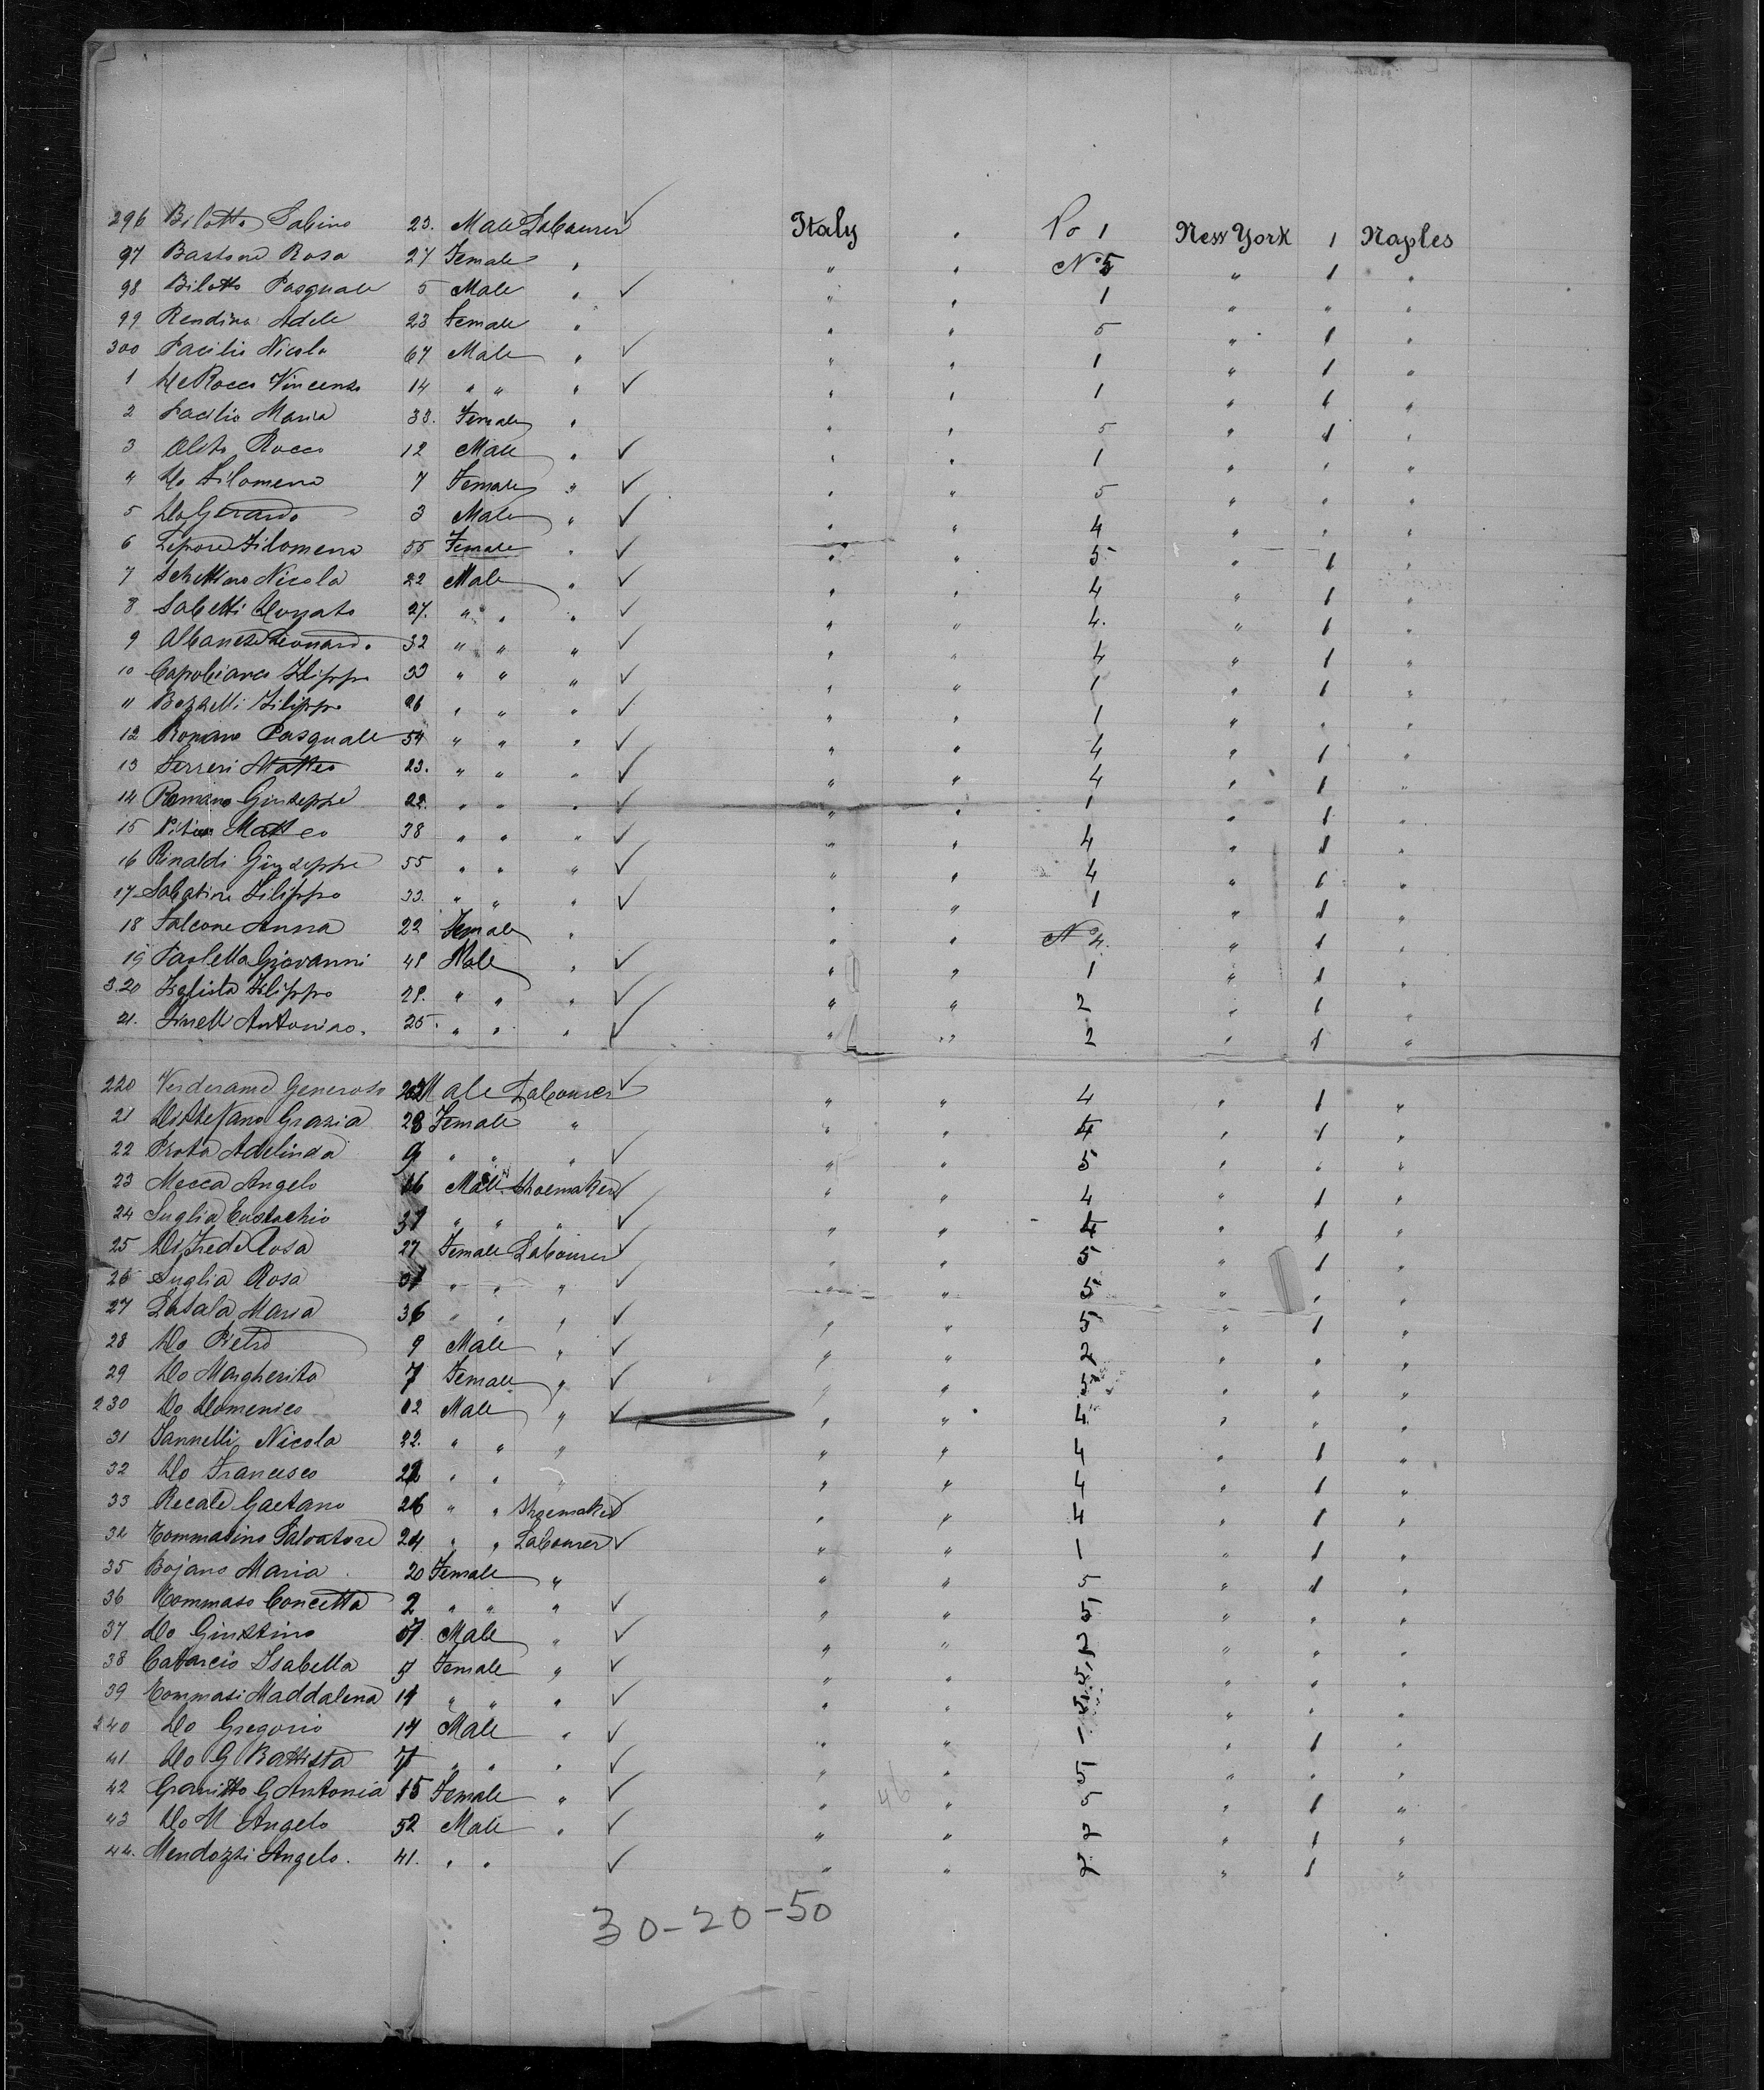 296 Bilotto Sabino 23. Male Labourer ✓ Italy " No 1 New York 1 Naples
97 Bastone Rosa 27 Female " " " No 5 " 1 "
98 Bilotto Pasquale 5 Male " ✓ " " 1 " " "
99 Rendina Adele 23 Female " " " 5 " 1 "
300 Pacilio Nicola 67 Male " ✓ " " 1 " 1 "
1 De Rocco Vincenzo 14 " " " ✓ " " 1 " 1 "
2 Pacilio Maria 33. Female " " " 5 " 1 "
3 Rocco 12 Male " ✓ " " 1 " " "
4 Do Filomena 7 Female " ✓ " " 5 " " "
5 Do Gerardo 3 Male " ✓ " " 4 " " "
6 Lepore Filomena 55 Female " ✓ " " 5 " 1 "
7 Schettino Nicola 22 Male " ✓ " " 4 " 1 "
8 Sabetti Donato 27. " " " ✓ " " 4. " 1 "
9 Albanese Leonardo 32 " " " ✓ " " 4 " 1 "
10 Capobianco Filippo 33 " " " ✓ " " 1 " 1 "
11 Bozzelli Filippo 26 " " " ✓ " " 1 " " "
12 Romano Pasquale 54 " " " ✓ " " 4 " 1 "
13 Ferreri Matteo 23. " " " ✓ " " 4 " 1 "
14 Romano Giuseppe 22. " " " ✓ " " 1 " 1 "
15 Matteo 38 " " " ✓ " " 4 " 1 "
16 Rinaldi Giuseppe 55 " " " ✓ " " 4 " 1 "
17 Sabatino Filippo 33. " " " ✓ " " 1 " 1 "
18 Falcone Anna 22 Female " " " No 4. " 1 "
19 Paoletta Giovanni 41 Male " ✓ " " 1 " 1 "
3.20 Filippo 29. " " " ✓ " " 2 " 1 "
21. Antonio. 25. " " " ✓ " " 2 " 1 "
220 Verderame Generoso Male Labourer ✓ " " 4 " 1 "
21 Di Stefano Grazia 28 Female " " " 4 " 1 "
22 Prota Adelinda 9 " " " ✓ " " 5 " " "
23 Mecca Angelo 16 Male Shoemaker ✓ " " 4 " 1 "
24 Suglia Eustachio 37 " " " ✓ " " 4 " 1 "
25 Rosa 27 Female Labourer ✓ " " 5 " 1 "
26 Suglia Rosa " " " ✓ " " 5 " " "
27 Lasala Maria 36 " " " ✓ " " 5 " 1 "
28 Do Pietro 9 Male " ✓ " " 2 " " "
29 Do Margherita 7 Female " ✓ " " 5 " " "
230 Do Domenico 02 Male " ✓ " " 4 " " "
31 Iannelli Nicola 22. " " " " " 4 " 1 "
32 Do Francesco " " " " 4 " 1 "
33 Recale Gaetano 26 " " Shoemaker ✓ " " 4 " 1 "
34 Tommasino Salvatore 24 " " Labourer ✓ " " 1 " 1 "
35 Bojano Maria 20 Female " " " 5 " 1 "
36 Tommaso Concetta 2 " " " ✓ " " 5 " " "
37 Do Giustino Male " ✓ " " 2 " " "
38 Catarcio Isabella 5 Female " ✓ " " 5 " " "
39 Tommasi Maddalena 14 " " " ✓ " " 5 " " "
240 Do Gregorio 14 Male " ✓ " " 1 " 1 "
41 Do G Battista 7 " " " ✓ " " 5 " " "
42 Granitto G Antonia 15 Female " ✓ 46 " " 5 " 1 "
43 Do M Angelo 52 Male " ✓ " " 2 " 1 "
44. Mendozzi Angelo. 41. " " ✓ " " 2 " 1 "
30-20-50